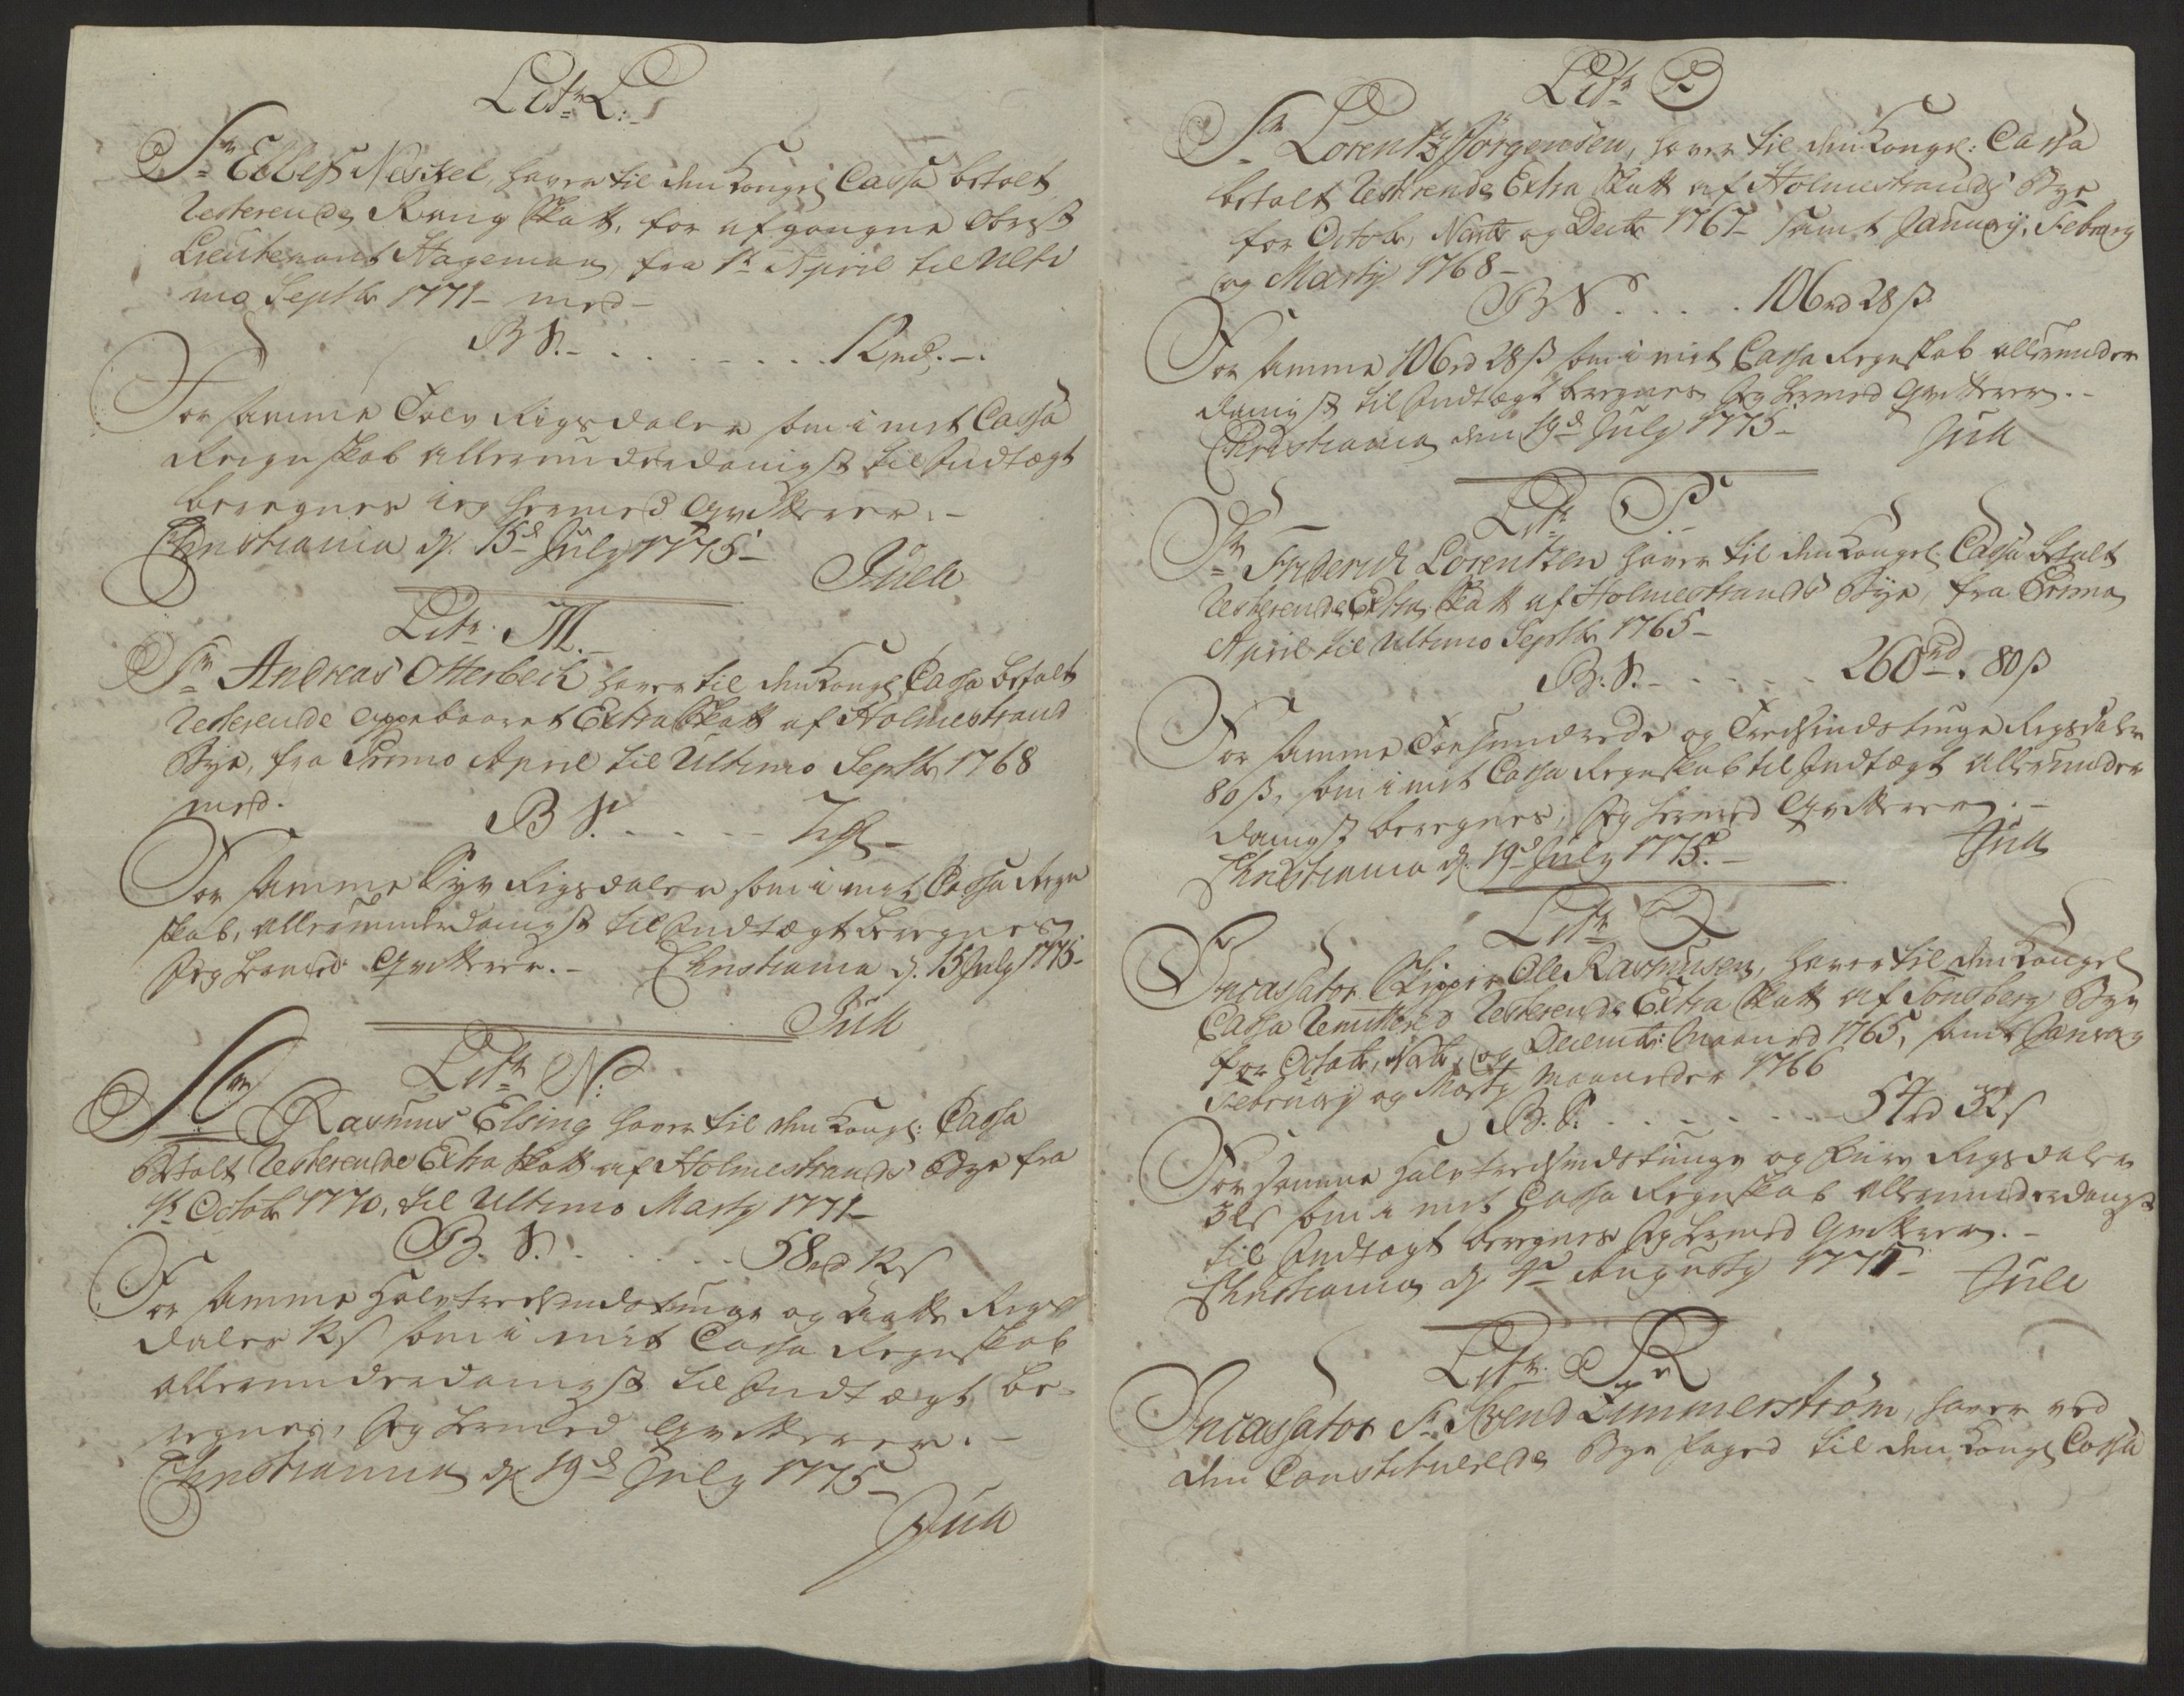 Litr: L:
Sr Ellef Neskel, haver til den Kongel Cassa betalt
Resterende Rang Skatt, for afgangne Obrist
Lieutenant Hageman, fra 1te April til Ulti
mo Septbr 1771 - med -
B S. - . . . . . . . 12rd. -.
For samme Tolv Rigsdaler som i mit Cassa
Regnskab allerunderdanigst til Indtægt
beregnes ieg hermed Qvitterer. -
Christiania d. 15de July 1775 -
Juell
Litr. M.
Sr Andreas Otterbech haver til den Kongl Cassa betalt
Resterende oppebaaret Extra Skatt af Holmestrand
Bye, fra Primo April til Ultimo Septbr 1768
med.
B S. . . . . -
For samme Syv Rigsdaler som i mit Cassa Regn
skab, allerunderdanigst til Indtægt beregnes
Jeg hermed Qvitterer. - Christiania d. 15 July 1775 -
Juell
Litr N:
Sr Rasmus Elsing haver til den Kongl: Cassa
Betalt Resterende Extra Skatt af Holmestrands Bye fra
1te Octobr 1770, til Ultimo Marty 1771 -
B. S. . . . . . 58rd 12s
For samme Halvtredsindstiuge og Aatte Rigs
daler 12s som i mit Cassa Regnskab
allerunderdanigst til Indtægt be-
regnes, Jeg hermed Qvitterer. -
Christiania d. 19de July 1775 -
Juell
Litr O
Sr Lorentz Jörgensen, haver til den Kongel: Cassa
betalt Resterende Extra Skatt af Holmestrands Bye
for Octobr, Novbr og Decbr 1767 - samt January, February
og Martij 1768 -
B S . . . . 106rd 28 ß
For samme 106rd 28 ß som i mit Cassa Regnskab allerunder
danigst til Indtægt beregnes Jeg hermed Qvitterer. -
Christiania den 19de July 1775 -
Juell
Litr P
Sr Friderich Lorentzen haver til den Kongel. Cassa betalt
Resterende Extra Skatt af Holmestrands Bye, fra Primo
April til Ultimo Septbr 1765 -
B. S. - . . . . . 260rd. 80 ß
For samme Toehundrede og Tredsindstiuge Rigsdaler
80 ß, som i mit Cassa Regnskab til Indtægt allerunder
danigst beregnes, Jeg hermed Qvitterer. -
Christiania d. 19de July 1775. -
Juell
Litr Q
Incassator Skipper Ole Rasmusen, haver til den Kongel
Cassa Remitteret Resterende Extra Skatt af Tonsberg Bye
for Octobr, Novbr, og Decembr: Maaned 1765, samt January
February og Marty Maaneder 1766
B. S. . . . . . 54rd 32s
For samme Halvtredsindstiuge og Fiire Rigsdaler
32s som i mit Cassa Regnskab allerunderdanigst
til Indtægt beregnes Jeg hermed Qvitterer. -
Christiania d. 1te Augusty 1775 -
Juell
Litr. R
Incassator Sr Svend Zimmerström, haver ved
den Constituerede Bye Foged til den Kongl Cassa